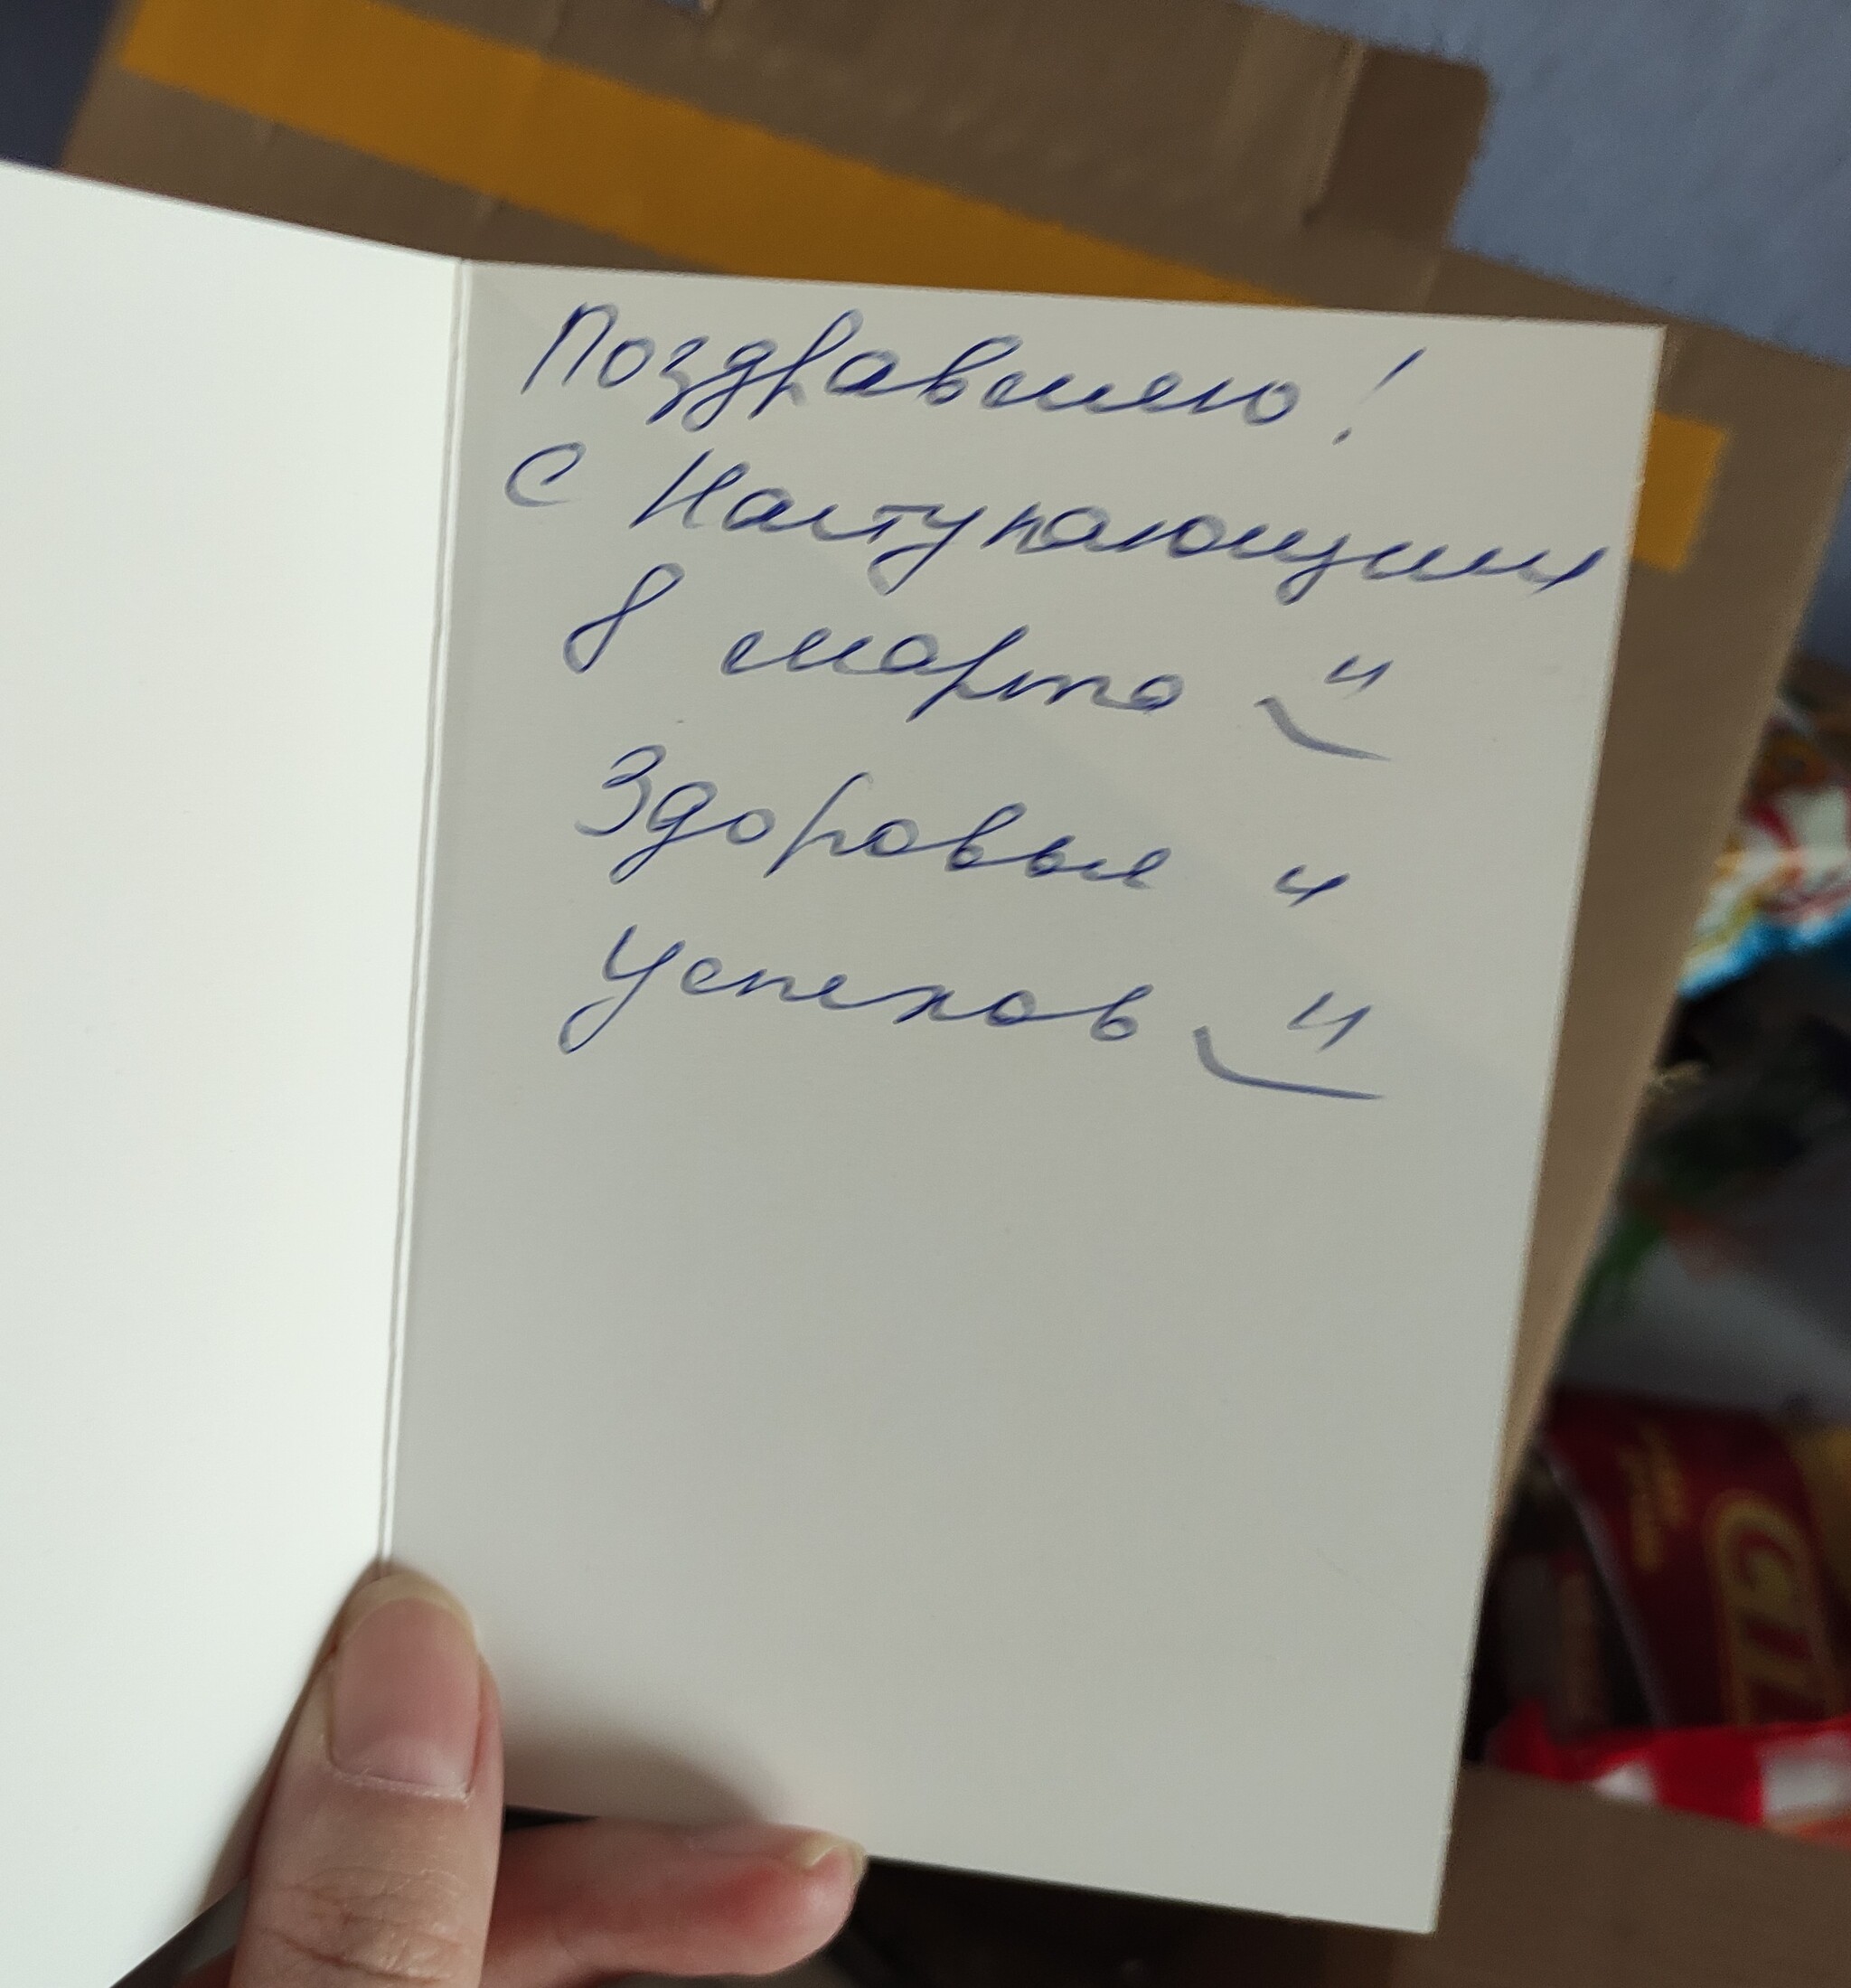 Поздравляю!
С Наступающим
8 марта "
Здоровья и
Успехов "